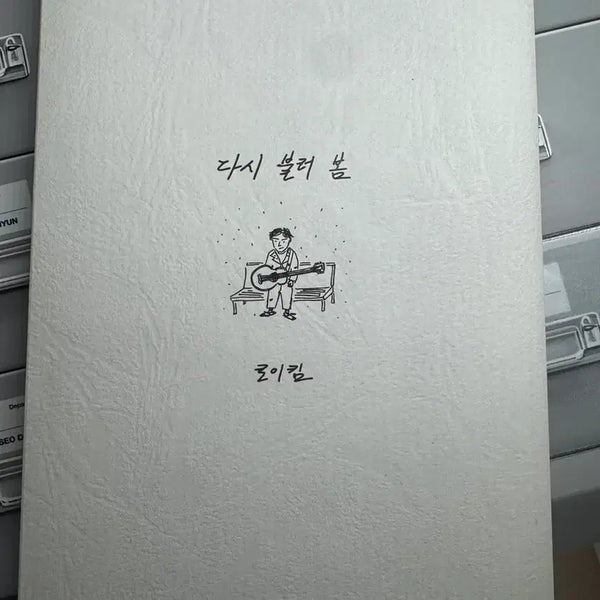 다시 불러 봄
로이킴
YUN
Depa
SEO D